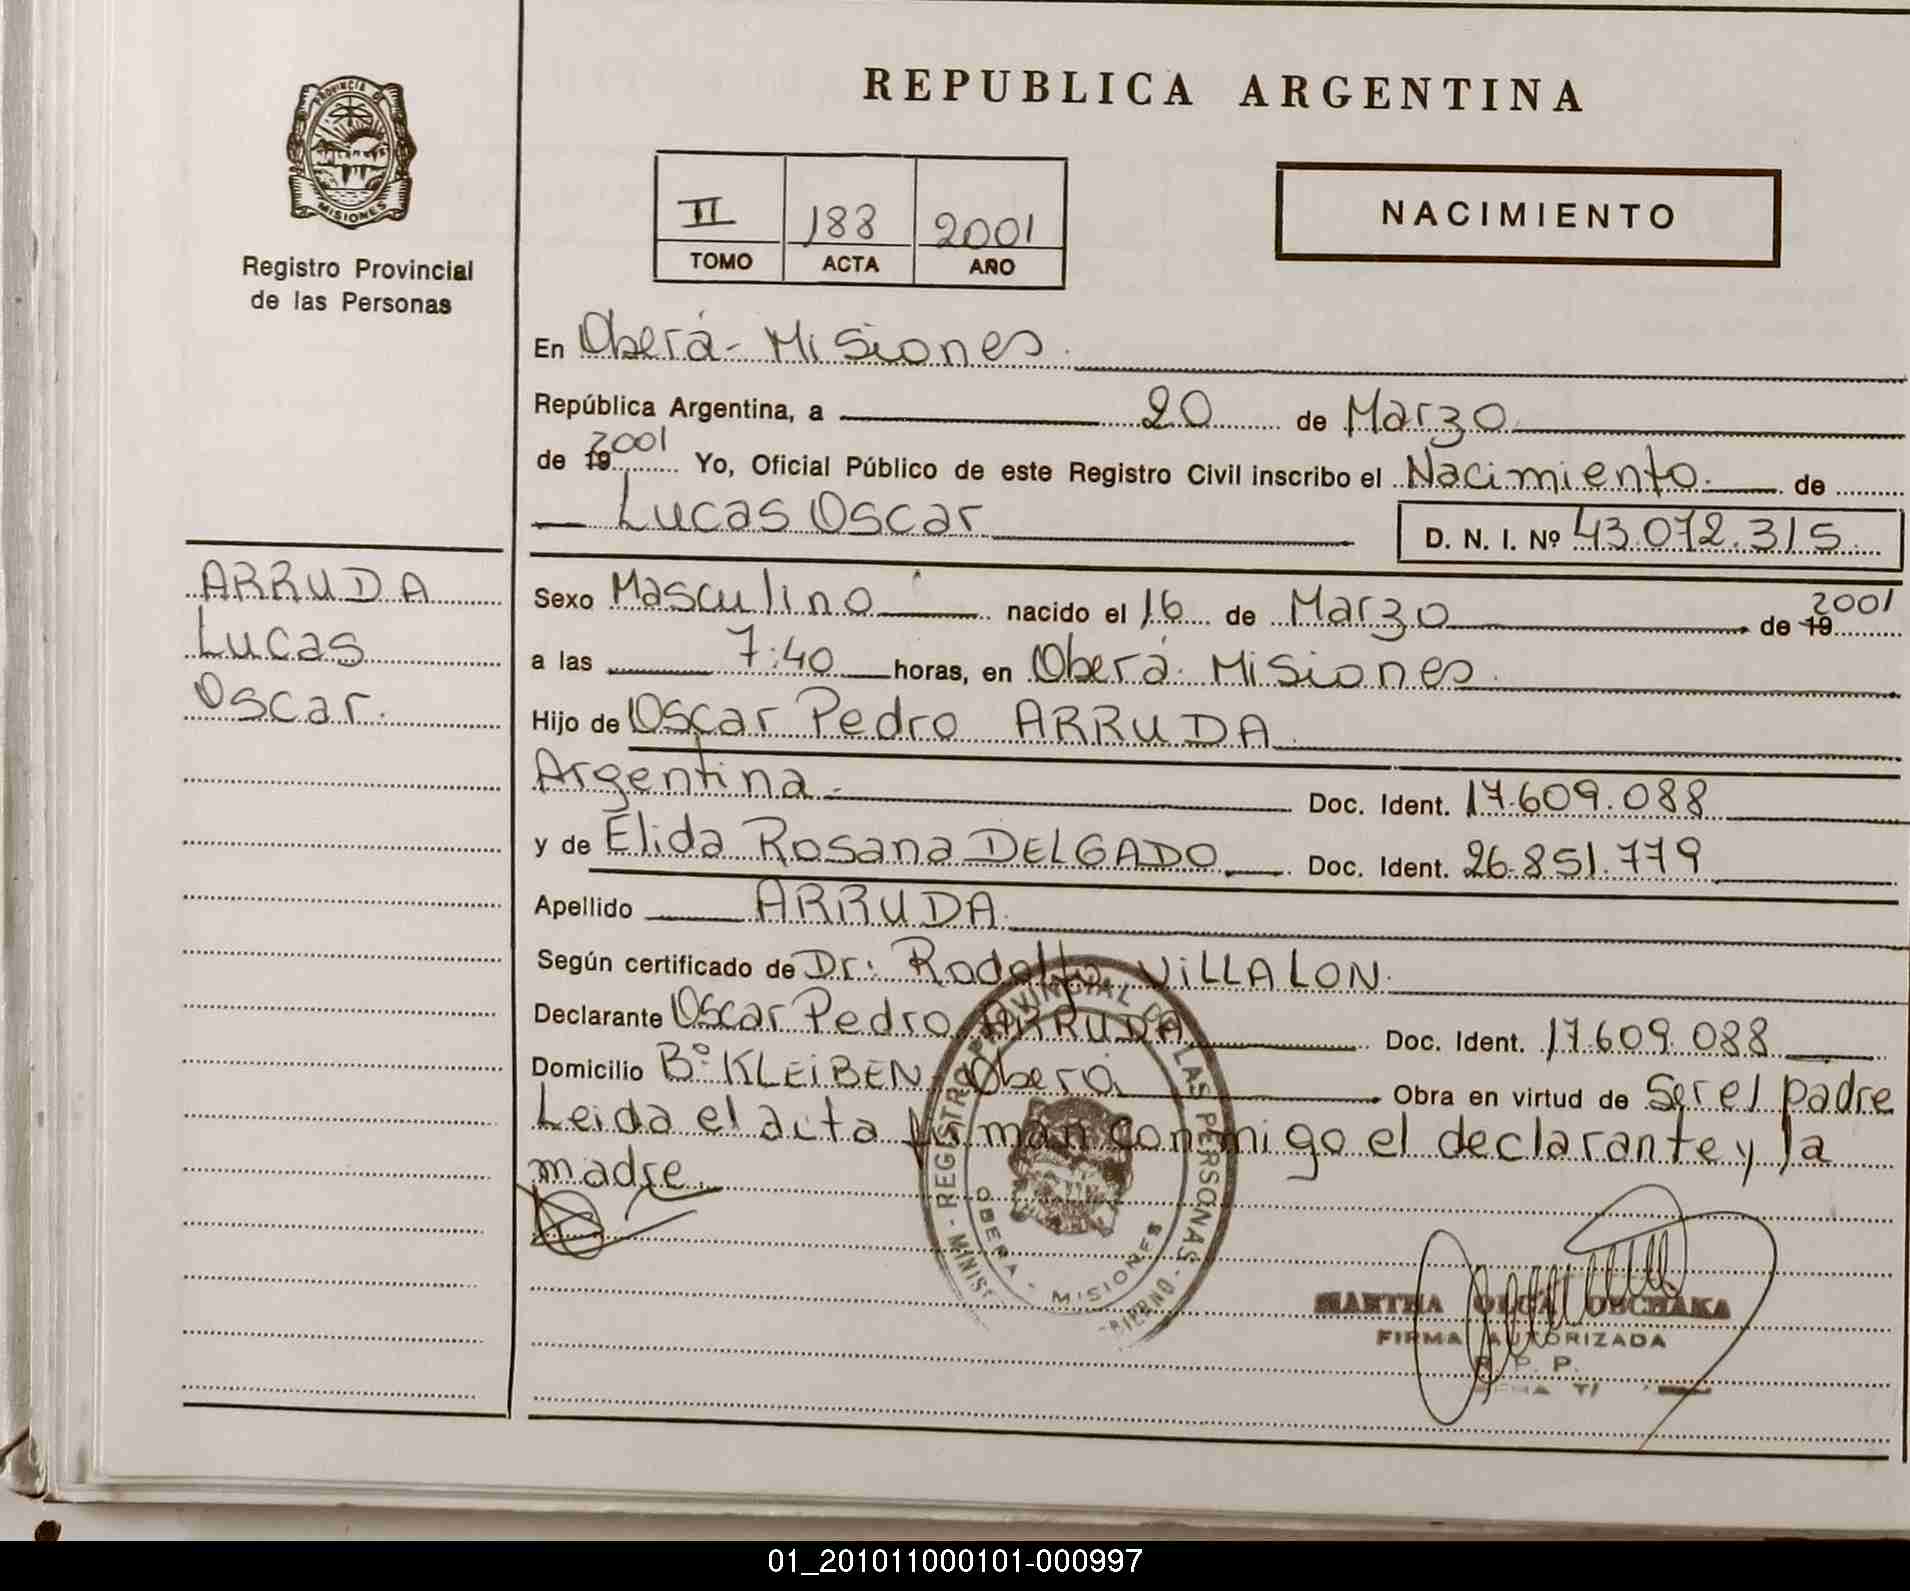 PROVINCIA DE
MISIONES
Registro Provincial
de las Personas
ARRUDA
Lucas
Oscar.
REPUBLICA ARGENTINA
II 188 2001
TOMO ACTA AÑO
NACIMIENTO
En Oberá - Misiones.
República Argentina, a 20 de Marzo
de 19 2001 Yo, Oficial Público de este Registro Civil inscribo el Nacimiento. de
Lucas Oscar
D. N. I. Nº 43.072.315.
Sexo Masculino nacido el 16 de Marzo de 19 2001
a las 7:40 horas, en Oberá. Misiones.
Hijo de Oscar Pedro ARRUDA.
Argentina.- Doc. Ident. 17.609.088
y de Elida Rosana DELGADO Doc. Ident. 26.851.779
Apellido ARRUDA.
Según certificado de Dr: Rodolfo ViLLALON.
Declarante Oscar Pedro ARRUDA Doc. Ident. 17.609.088
Domicilio Bº KLEiBEN - Oberá Obra en virtud de Ser el padre
Leida el acta firman conmigo el declarante y la
madre.
REGISTRO PROVINCIAL DE LAS PERSONAS
OBERA - MISIONES
MARTHA OLGA
FIRMA AUTORIZADA
R. P. P.
01_201011000101-000997